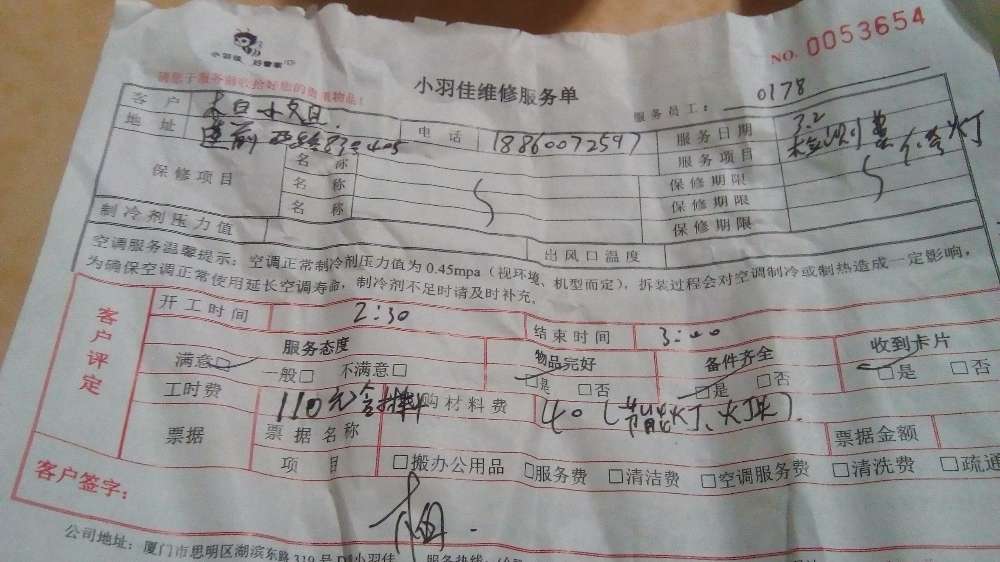 小羽佳 好管家
NO. 0053654
请您于服务前收拾好您的贵重物品！
小羽佳维修服务单
服务员工： 0178
客户 电话 18860072597 服务日期 3.2
地址 服务项目
保修项目 名称 保修期限
名称 保修期限
名称 保修期限
制冷剂压力值 出风口温度
空调服务温馨提示：空调正常制冷剂压力值为0.45mpa（视环境、机型而定），拆装过程会对空调制冷或制热造成一定影响，
为确保空调正常使用延长空调寿命，制冷剂不足时请及时补充。
客户评定
开工时间 2:30 结束时间 3:00
服务态度 物品完好 备件齐全 收到卡片
满意□ 一般□ 不满意□ □是 □否 □是 □否 □是 □否
工时费 110元含 购材料费 40（节能灯、灯
票据 票据名称 票据金额
项目 □搬办公用品 □服务费 □清洁费 □空调服务费 □清洗费 □疏通
客户签字：
公司地址：厦门市思明区湖滨东路319号D 小羽佳 服务热线：